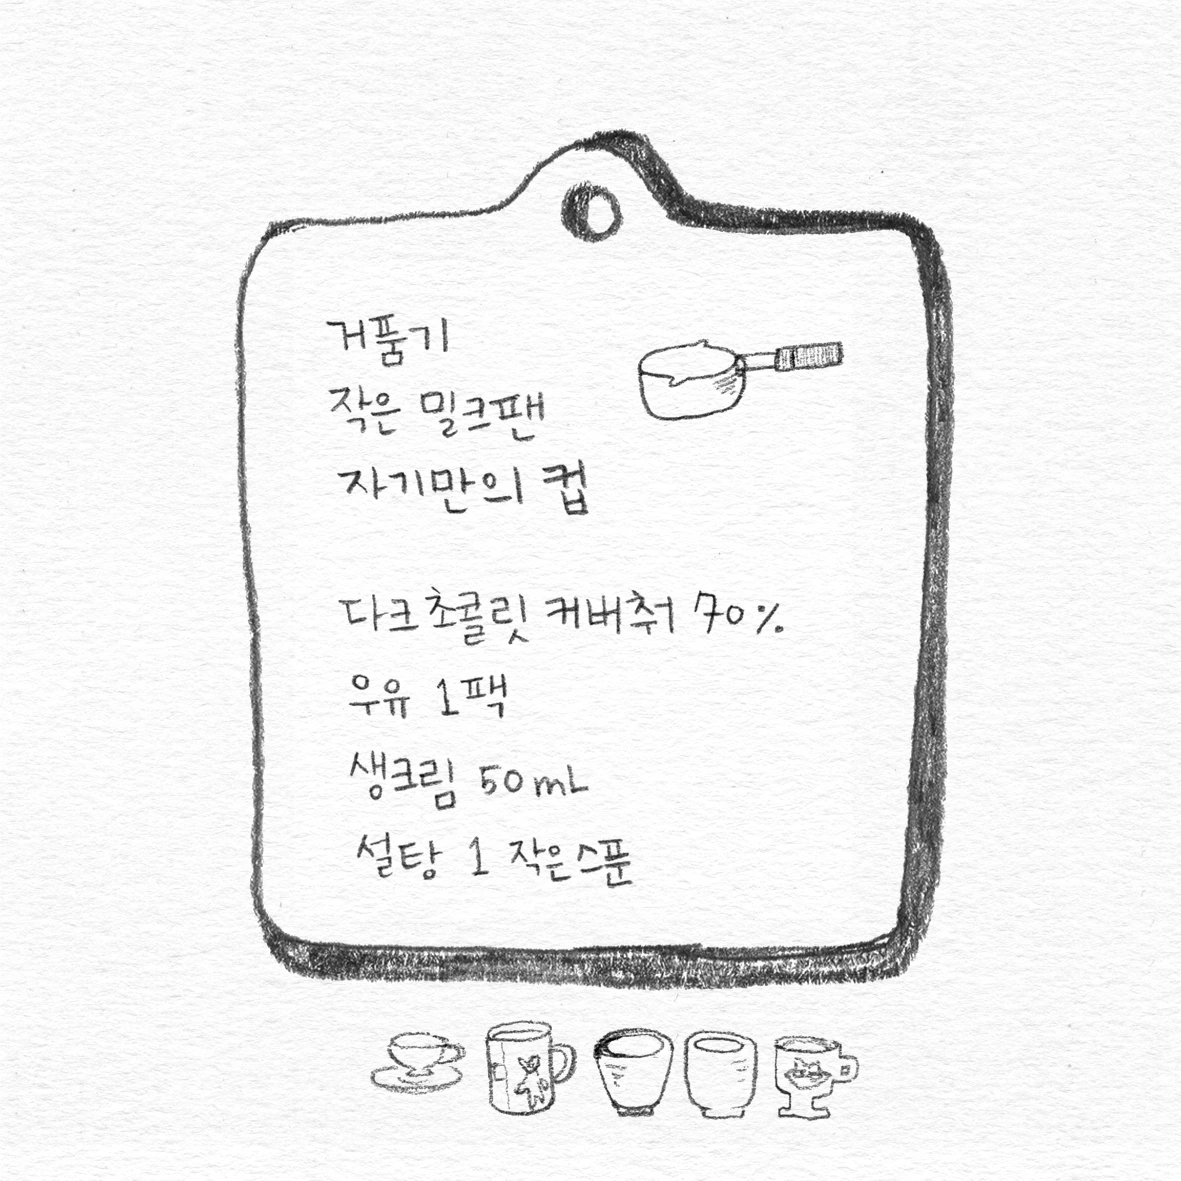 거품기
작은 밀크팬
자기만의 컵
다크초콜릿 커버춰 70%
우유 1팩
생크림 50mL
설탕 1 작은스푼